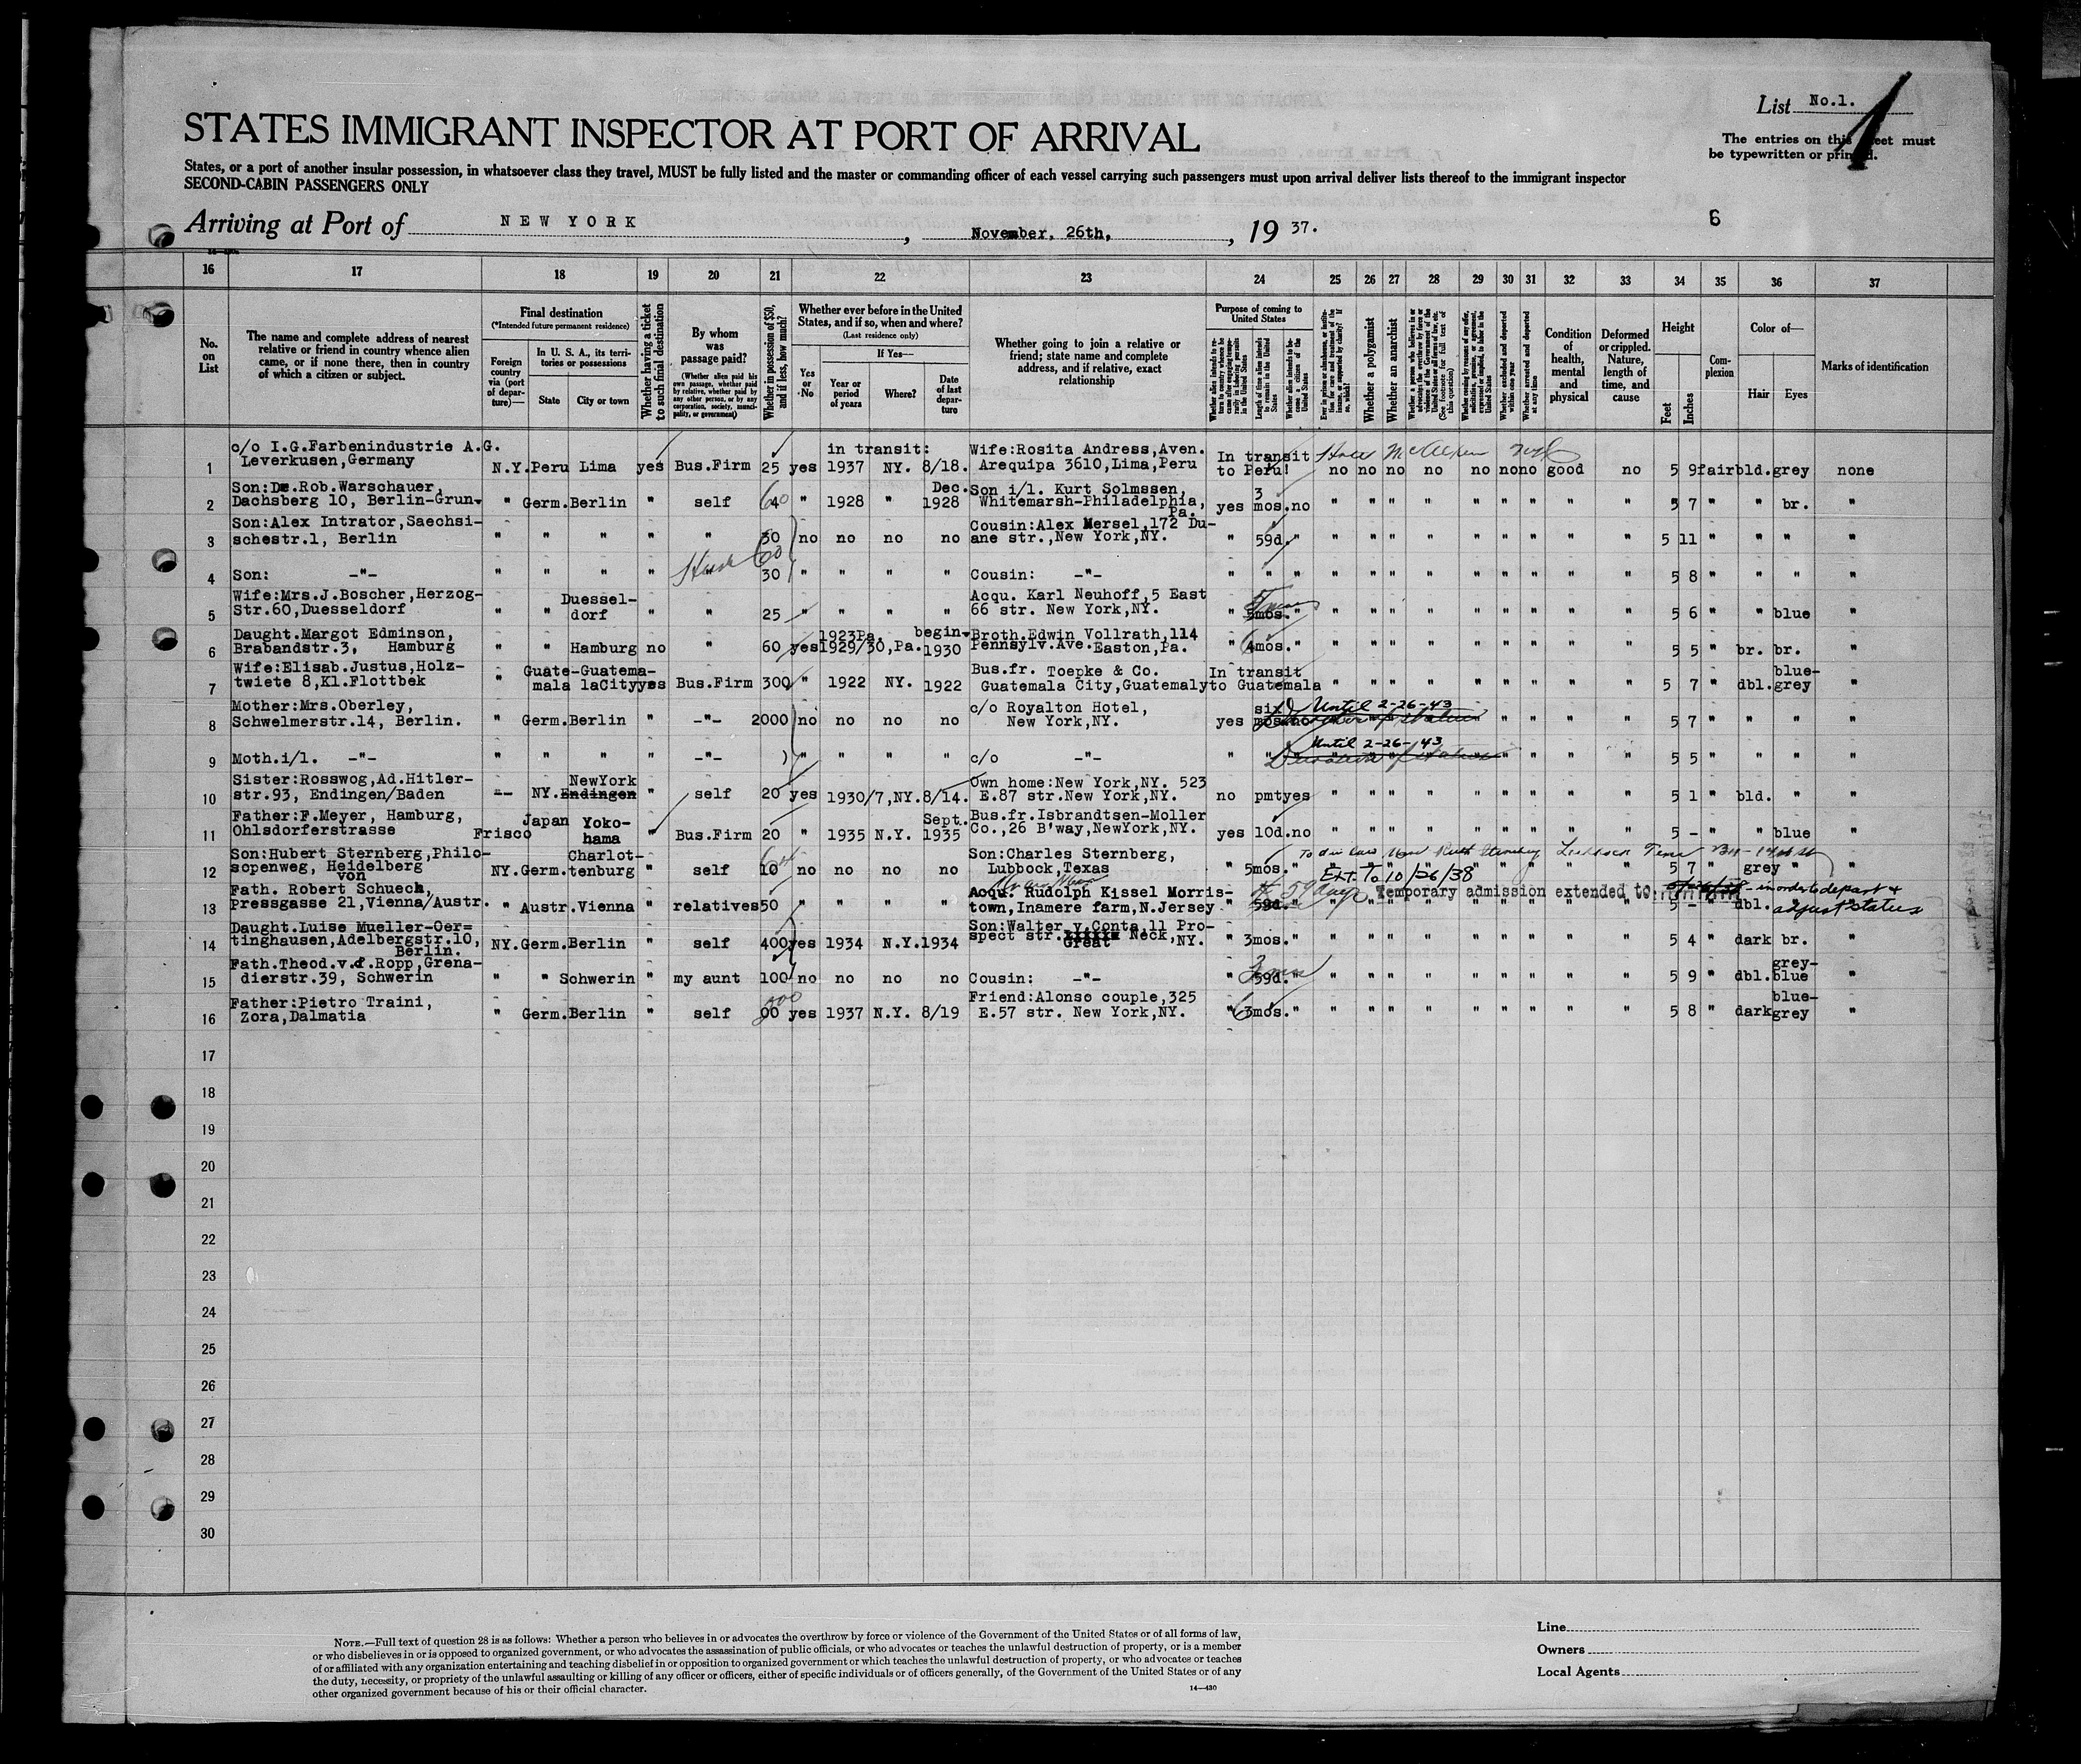 List No.1.
The entries on this sheet must
be typewritten or printed.
STATES IMMIGRANT INSPECTOR AT PORT OF ARRIVAL
States, or a port of another insular possession, in whatsoever class they travel, MUST be fully listed and the master or commanding officer of each vessel carrying such passengers must upon arrival deliver lists thereof to the immigrant inspector
SECOND-CABIN PASSENGERS ONLY
Arriving at Port of NEW YORK , November, 26th, , 19 37.
6
16 17 18 19 20 21 22 23 24 25 26 27 28 29 30 31 32 33 34 35 36 37
No. on List
The name and complete address of nearest relative or friend in country whence alien came, or if none there, then in country of which a citizen or subject.
Final destination
(*Intended future permanent residence)
Foreign country via (port of departure)—
In U. S. A., its territories or possessions
State City or town
Whether having a ticket to such final destination
By whom was passage paid?
(Whether alien paid his own passage, whether paid by relative, whether paid by any other person, or by any corporation, society, municipality, or government)
Whether in possession of $50, and if less, how much?
Whether ever before in the United States, and if so, when and where?
(Last residence only)
Yes or No
If Yes—
Year or period of years Where? Date of last departure
Whether going to join a relative or friend; state name and complete address, and if relative, exact relationship
Purpose of coming to United States
Length of time alien intends to remain in the United States
Whether alien intends to become a citizen of the United States
Whether a polygamist
Whether an anarchist
Whether excluded and deported within one year
Whether arrested and deported at any time
Condition of health, mental and physical
Deformed or crippled. Nature, length of time, and cause
Height
Feet Inches
Complexion
Color of—
Hair Eyes
Marks of identification
1 c/o I.G.Farbenindustrie A.G. Leverkusen,Germany N.Y. Peru Lima yes Bus.Firm 25 yes in transit: 1937 NY. 8/18. Wife:Rosita Andress,Aven. Arequipa 3610,Lima,Peru In transit to Peru! no no no no no no no good no 5 9 fair bld. grey none
2 Son:Dr.Rob.Warschauer, Dachsberg 10, Berlin-Grun- " Germ. Berlin " self 60 " 1928 " Dec. 1928 Son i/l. Kurt Solmssen, Whitemarsh-Philadelphia, Pa. yes 3 mos. no " " " " " " " " " 5 7 " " br. "
3 Son:Alex Intrator,Saechsi- schestr.1, Berlin " " " " " 30 no no no no Cousin:Alex Mersel,172 Du- ane str.,New York,NY. " 59d. " " " " " " " " " " 5 11 " " " "
4 Son: -"- " " " " " 30 " " " " Cousin: -"- " " " " " " " " " " " " 5 8 " " " "
5 Wife:Mrs.J.Boscher,Herzog- Str.60,Duesseldorf " " Duessel- dorf " " 25 " " " " Acqu. Karl Neuhoff,5 East 66 str. New York,NY. " mos. " " " " " " " " " " 5 6 " " blue "
6 Daught.Margot Edminson, Brabandstr.3, Hamburg " " Hamburg no " 60 yes 1923Pa. 1929/30,Pa. begin- 1930 Broth.Edwin Vollrath,114 Pennsylv.Ave.Easton,Pa. " mos. " " " " " " " " " " 5 5 " br. br. "
7 Wife:Elisab.Justus,Holz- twiete 8,Kl.Flottbek " Guate- mala Guatema- laCity yes Bus.Firm 300 " 1922 NY. 1922 Bus.fr. Toepke & Co. Guatemala City,Guatemaly In transit to Guatemala " " " " " " " " " 5 7 " dbl. blue- grey "
8 Mother:Mrs.Oberley, Schwelmerstr.14, Berlin. " Germ. Berlin " -"- 2000 no no no no c/o Royalton Hotel, New York,NY. yes six mos. no Until 2-26-43 5 7 " " " "
9 Moth.i/l. -"- " " " " -"- " " " " c/o -"- " " Until 2-26-43 5 5 " " " "
10 Sister:Rosswog,Ad.Hitler- str.93, Endingen/Baden -- NY. NewYork Endingen " self 20 yes 1930/7,NY. 8/14. Own home:New York,NY. 523 E.87 str.New York,NY. no pmt yes " " " " " " " " " 5 1 " bld. " "
11 Father:F.Meyer, Hamburg, Ohlsdorferstrasse Frisco Japan Yoko- hama " Bus.Firm 20 " 1935 N.Y. Sept. 1935 Bus.fr.Isbrandtsen-Moller Co.,26 B'way,NewYork,NY. yes 10d. no " " " " " " " " " 5 - " " blue "
12 Son:Hubert Sternberg,Philo- sopenweg, Heidelberg NY. Germ. Charlot- tenburg " self 10 no no no no Son:Charles Sternberg, Lubbock,Texas " 5mos. " Ext. To 10/26/38 5 7 " grey " "
13 Fath. Robert von Schuech, Pressgasse 21,Vienna/Austr. " Austr. Vienna " relatives 50 " " " " Acqu. Rudolph Kissel Morris- town,Inamere farm,N.Jersey " 59d. " Temporary admission extended to: - in order to depart & adjust status 5 - " dbl. "
14 Daught.Luise Mueller-Oer= tinghausen,Adelbergstr.10, Berlin. NY. Germ. Berlin " self 400 yes 1934 N.Y. 1934 Son:Walter v.Conta,11 Pro- spect str. Great Neck,NY. " 3mos. " " " " " " " " " " 5 4 " dark br. "
15 Fath.Theod.v.d.Ropp,Grena- dierstr.39, Schwerin " " Schwerin " my aunt 100 no no no no Cousin: -"- " 59d. " " " " " " " " " " 5 9 " dbl. grey- blue "
16 Father:Pietro Traini, Zora,Dalmatia " Germ. Berlin " self yes 1937 N.Y. 8/19 Friend:Alonso couple,325 E.57 str. New York,NY. " mos. " " " " " " " " " " 5 8 " dark blue- grey "
17
18
19
20
21
22
23
24
25
26
27
28
29
30
NOTE.—Full text of question 28 is as follows: Whether a person who believes in or advocates the overthrow by force or violence of the Government of the United States or of all forms of law,
or who disbelieves in or is opposed to organized government, or who advocates the assassination of public officials, or who advocates or teaches the unlawful destruction of property, or is a member
of or affiliated with any organization entertaining and teaching disbelief in or opposition to organized government or which teaches the unlawful destruction of property, or who advocates or teaches
the duty, necessity, or propriety of the unlawful assaulting or killing of any officer or officers, either of specific individuals or of officers generally, of the Government of the United States or of any
other organized government because of his or their official character.
14—430
Line
Owners
Local Agents